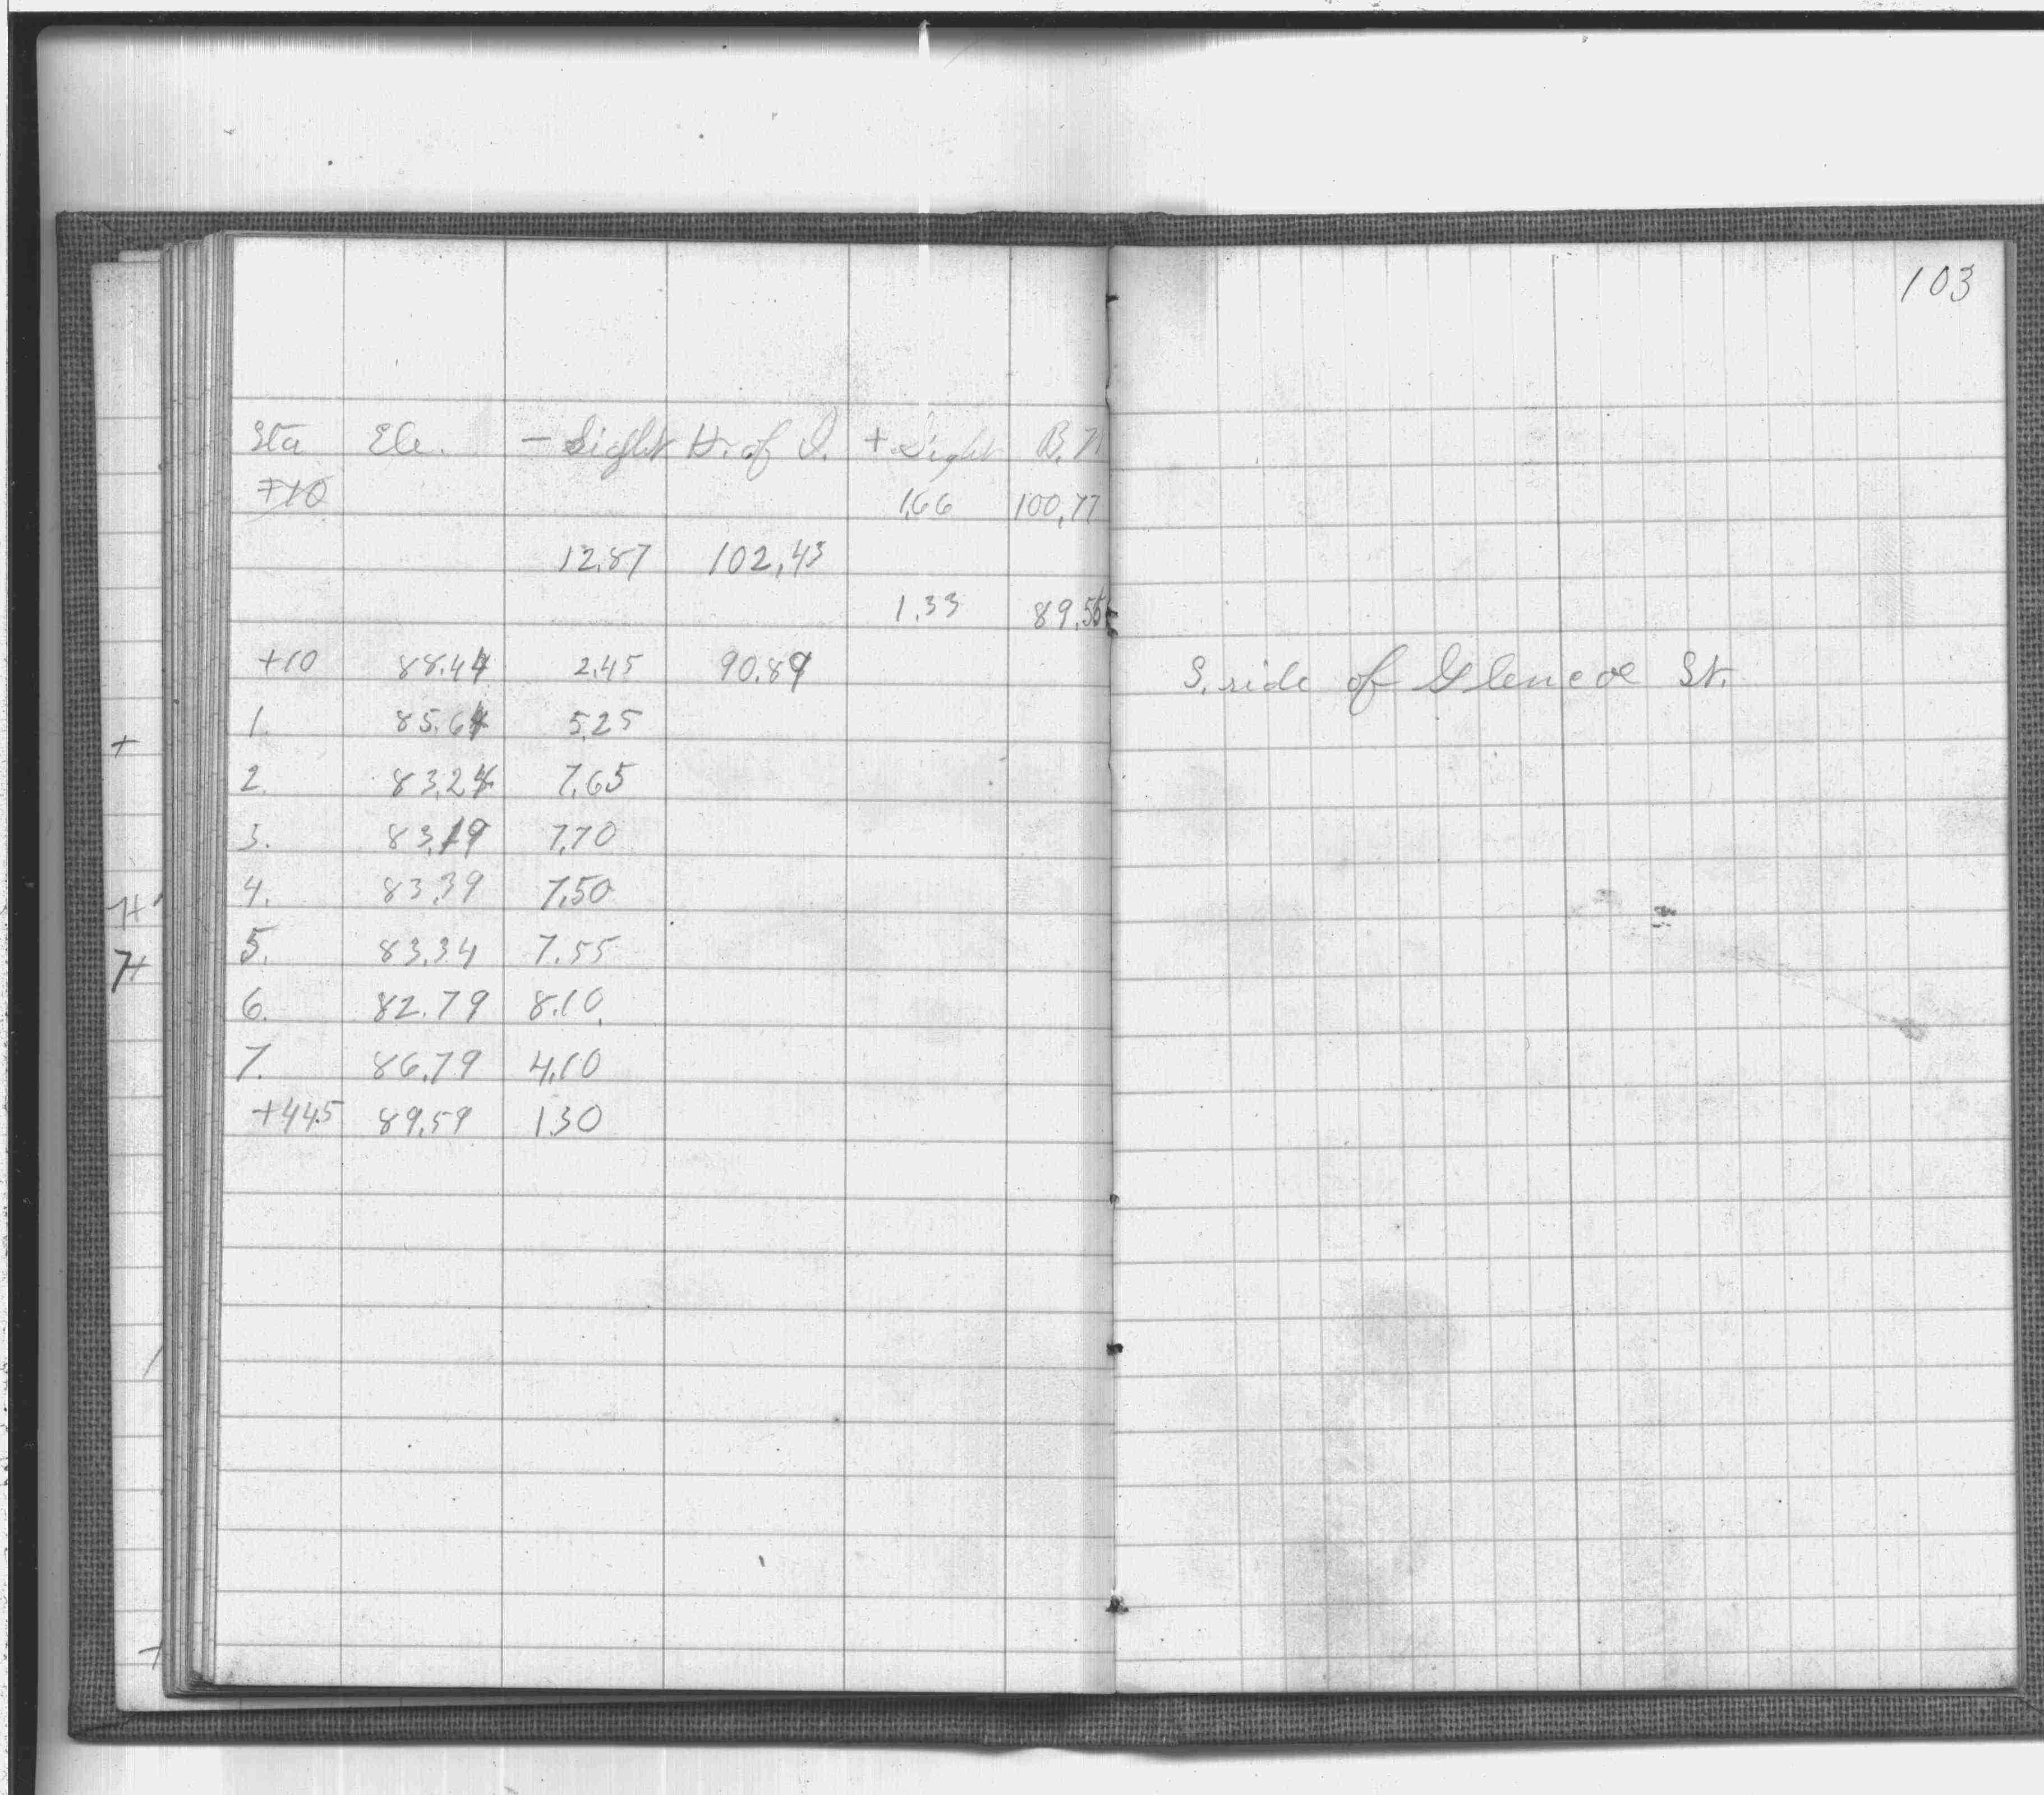 103
Sta Ele. - Sight H. of I. + Sight B. M
+10 1.66 100.77
12.87 102.43
1.33 89.56
+10 88.44 2.45 90.89 S. side of Gleneoe St.
1. 85.64 5.25
2. 83.24 7.65
3. 83.19 7.70
4. 83.39 7.50
5. 83.34 7.55
6. 82.79 8.10
7. 86.79 4.10
+44.5 89.59 1.30